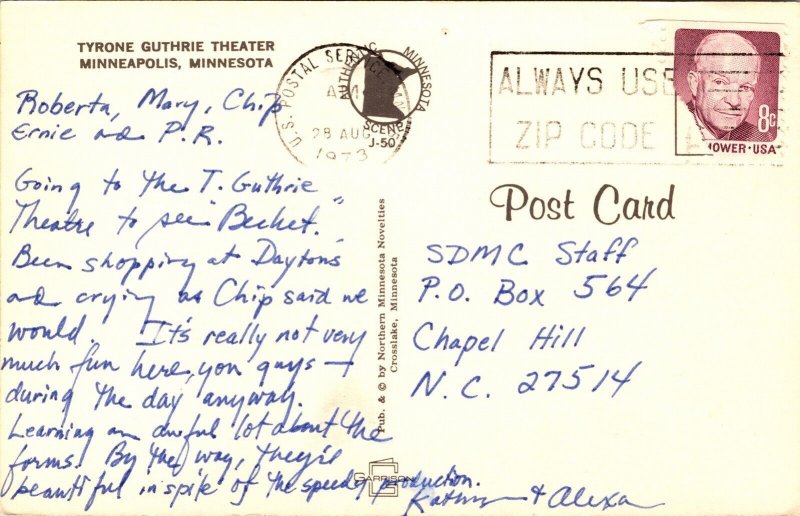 TYRONE GUTHRIE THEATER
MINNEAPOLIS, MINNESOTA
U.S. POSTAL SERVICE
AM
28 AUG
1973
AUTHENTIC
MINNESOTA
SCENE
J-50
ALWAYS USE
ZIP CODE
8c
HOWER·USA
Roberta, Mary, Chip
Ernie and P.R.
Going to the T. Guthrie
Theatre to see "Becket."
Been shopping at Daytons
and crying as Chip said we
would. It's really not very
much fun here, you guys —
during the day anyway.
Learning an awful lot about the
forms. By the way, they're
beautiful in spite of the speedy production.
Kathryn + Alexa
Pub. & © by Northern Minnesota Novelties
Crosslake, Minnesota
GARRISON
Post Card
SDMC Staff
P.O. Box 564
Chapel Hill
N.C. 27514